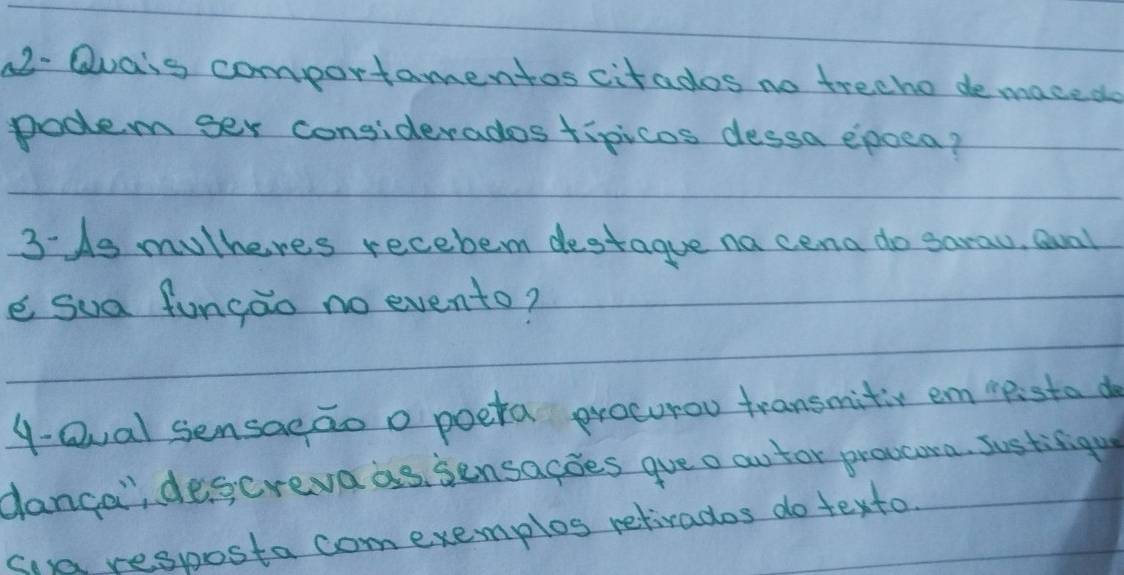 2- Quais comportamentos citados no trecho de macedo
podem ser considerados típicos dessa época?
3- As mulheres recebem destaque na cena do sarau. Qual
é sua função no evento?
4- Qual sensação o poeta procurou transmitir em "Pista de
dança", descreva as sensações que o autor proucura. Justifique
sua resposta com exemplos retirados do texto.